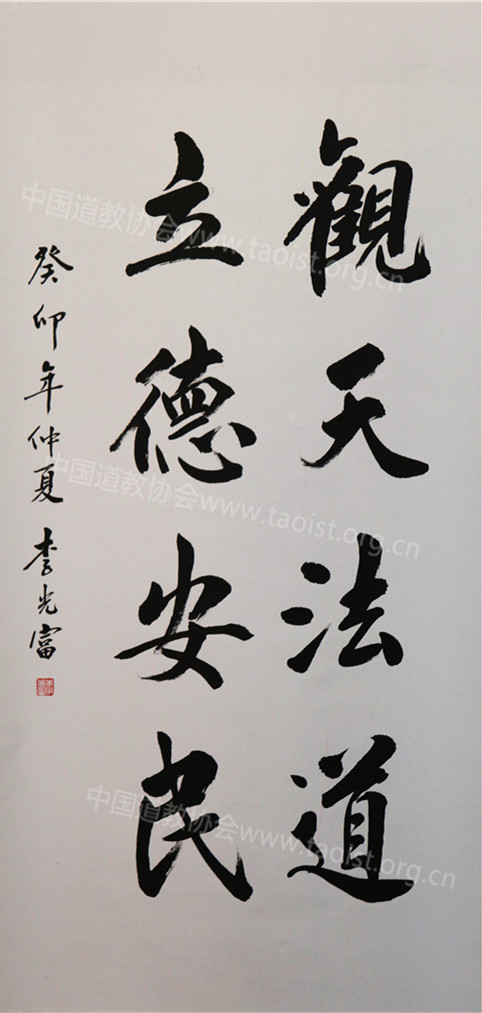 觀天法道
立德安民
癸卯年仲夏 李光富
中国道教协会www.taoist.org.cn
中国道教协会www.taoist.org.cn
中国道教协会www.taoist.org.cn